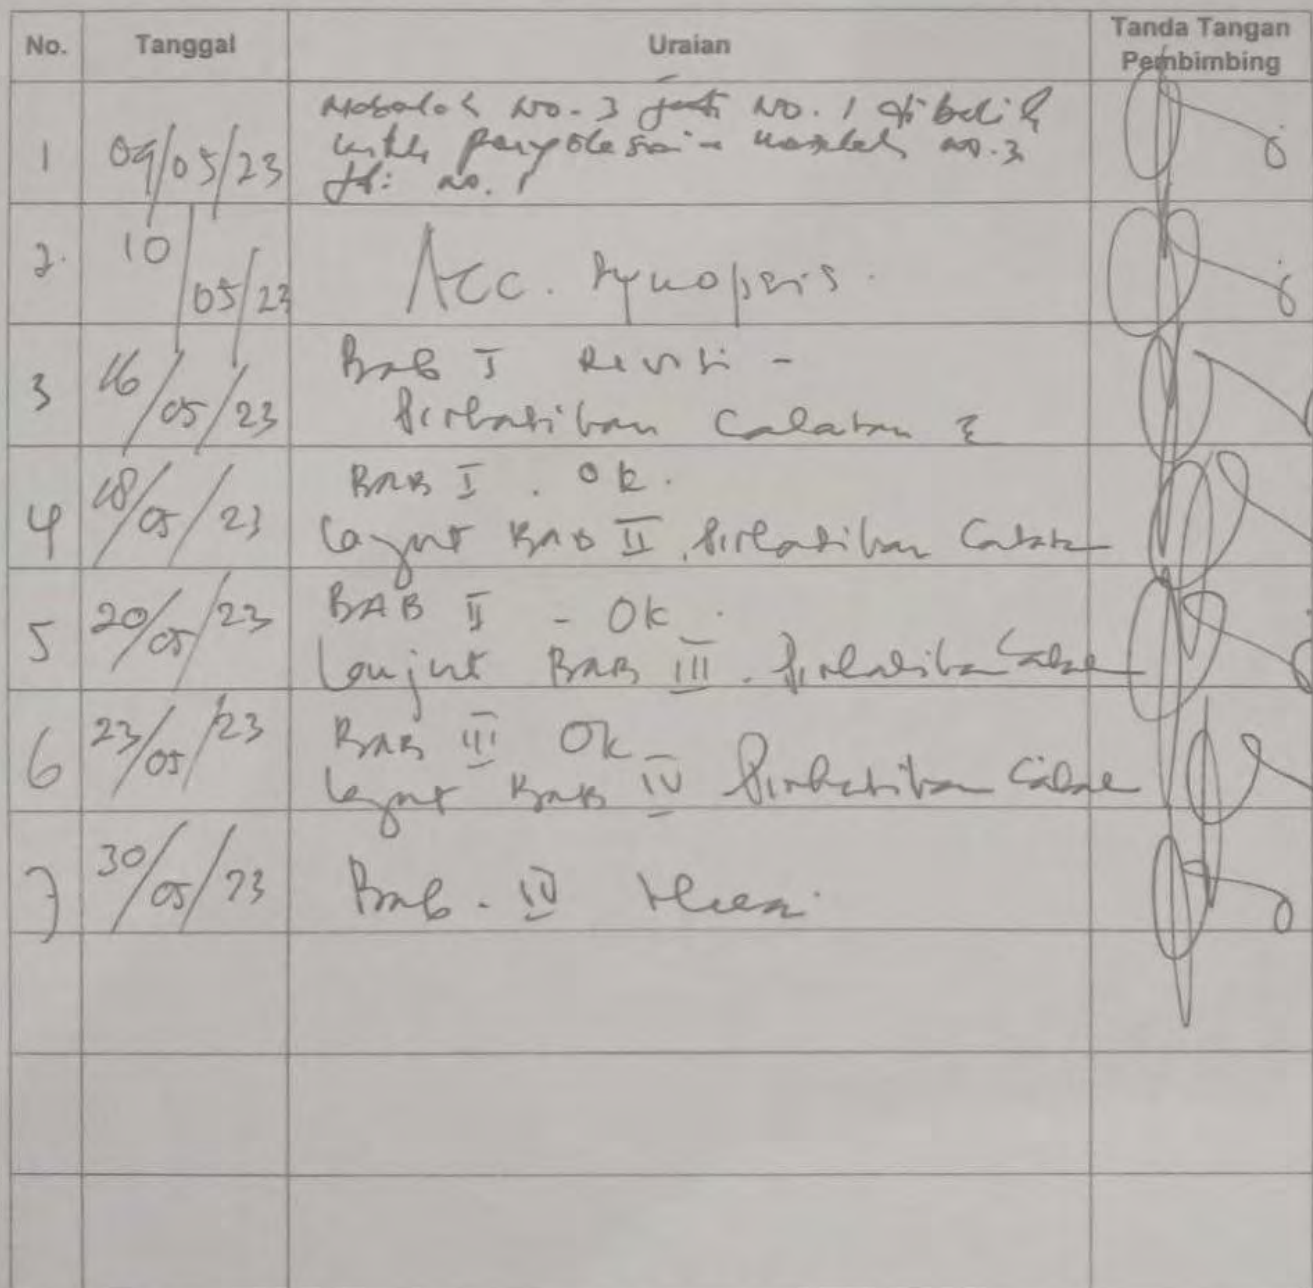 No. Tanggal Uraian Tanda Tangan
Pembimbing
1 09/05/23 No. 3 No. 1 dibalik
masalah no. 3
no. 1
2. 10/05/23 Acc. Synopsis.
3 16/05/23 Bab I Revisi -
Perhatikan Catatan
4 18/05/23 BAB I . Ok.
Lanjut BAB II . Perhatikan Catatan
5 20/05/23 BAB II - Ok.
Lanjut BAB III . Perhatikan Catatan
6 23/05/23 BAB III Ok
Lanjut BAB IV Perhatikan Catatan
7 30/05/23 Bab . IV